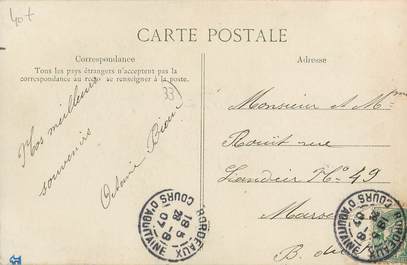 40+
CARTE POSTALE
Correspondance
Tous les pays étrangers n'acceptent pas la
correspondance au recto se renseigner à la poste.
Adresse
33
Nos meilleurs
souvenirs
Monsieur et Mme
rue
N° 49
B. du
BORDEAUX
18 5
28 3
07
COURS D'AQUITAINE
BORDEAUX
COURS D'AQUITAINE